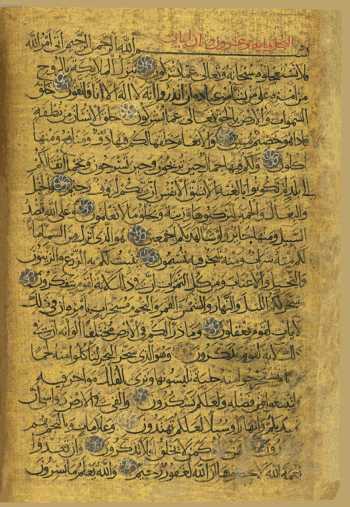 بسم الله الرحمن الرحيم أتى أمر الله
فلا تستعجلوه سبحانه وتعالى عما يشركون ينزل الملائكة بالروح
من أمره على من يشاء من عباده أن أنذروا أنه لا إله إلا أنا فاتقون خلق
السموات والأرض بالحق تعالى عما يشركون خلق الإنسان من نطفة
فإذا هو خصيم مبين والأنعام خلقها لكم فيها دفء ومنافع ومنها
تأكلون ولكم فيها جمال حين تريحون وحين تسرحون وتحمل أثقالكم
إلى بلد لم تكونوا بالغيه إلا بشق الأنفس إن ربكم لرؤف رحيم والخيل
والبغال والحمير لتركبوها وزينة ويخلق ما لا تعلمون وعلى الله قصد
السبيل ومنها جائر ولو شاء لهديكم أجمعين هو الذي أنزل من السماء ماء
لكم منه شراب ومنه شجر فيه تسيمون ينبت لكم به الزرع والزيتون
والنخيل والأعناب ومن كل الثمرات إن في ذلك لآية لقوم يتفكرون و
سخر لكم الليل والنهار والشمس والقمر والنجوم مسخرات بأمره إن في ذلك
لآيات لقوم يعقلون وما ذرأ لكم في الأرض مختلفا ألوانه إن في
ذلك لآية لقوم يذكرون وهو الذي سخر البحر لتأكلوا منه لحما
طريا وتستخرجوا منه حلية تلبسونها وترى الفلك مواخر فيه
ولتبتغوا من فضله ولعلكم تشكرون وألقى في الأرض رواسي أن
تميد بكم وأنهارا وسبلا لعلكم تهتدون وعلامات وبالنجم هم
يهتدون أفمن يخلق كمن لا يخلق أفلا تذكرون وإن تعدوا
نعمة الله لا تحصوها إن الله لغفور رحيم والله يعلم ما تسرون